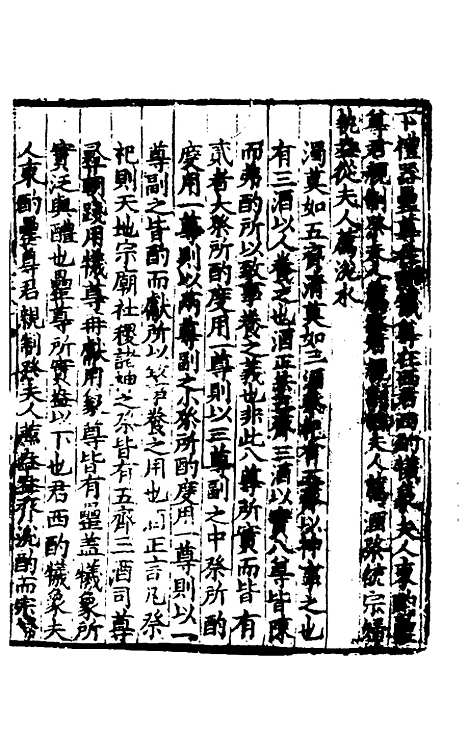 下禮器罍尊在阼犧尊在西君西酌犧象夫人東酌罍
尊君親制祭夫人薦盎君親割牲夫人薦酒祭統宗婦
執盎從夫人薦涗水
濁莫如五齊清莫如三酒祭祀有五齊以神事之也
有三酒以人養之也酒正共五齊三酒以實八尊皆陳
而弗酌所以致事養之義也非此八尊所實而皆有
貳者大祭所酌度用一尊則以三尊副之中祭所酌
度用一尊則以兩尊副之小祭所酌度用一尊則以一
尊副之皆酌而獻所以等養之用也酒正言凡祭
祀則天地宗廟社稷諸神之祭皆有五齊三酒司尊
彝朝踐用犧尊再獻用象尊皆有罍蓋犧象所
實泛與醴也罍尊所實盎以下也君西酌犧象夫
人東酌罍尊君親制祭夫人薦盎盎齊涗酌而宗婦